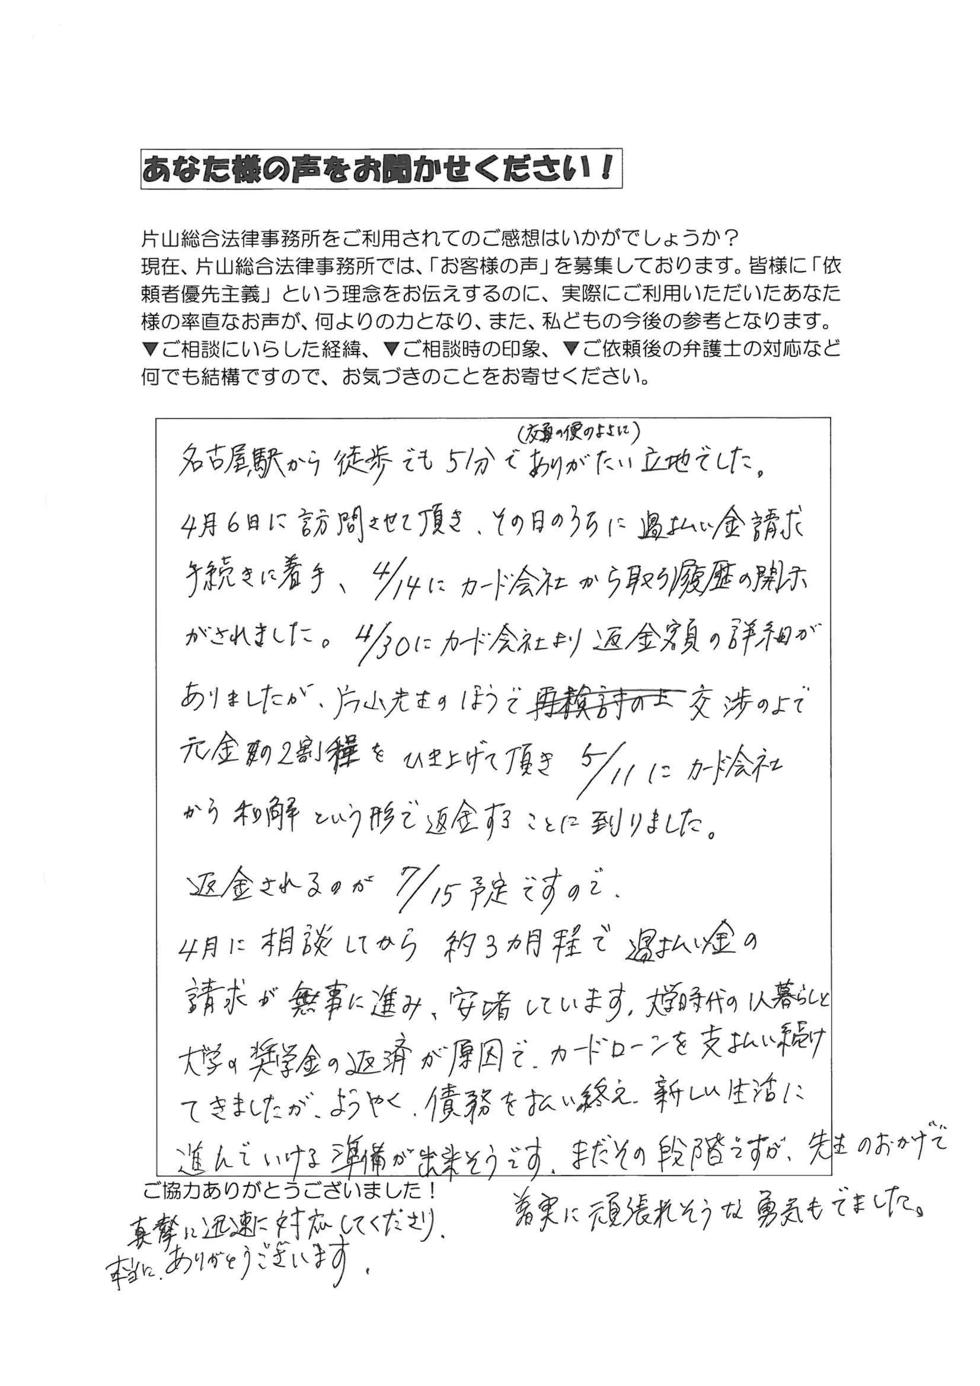 あなた様の声をお聞かせください！
片山総合法律事務所をご利用されてのご感想はいかがでしょうか？
現在、片山総合法律事務所では、「お客様の声」を募集しております。皆様に「依
頼者優先主義」という理念をお伝えするのに、実際にご利用いただいたあなた
様の率直なお声が、何よりの力となり、また、私どもの今後の参考となります。
▼ご相談にいらした経緯、▼ご相談時の印象、▼ご依頼後の弁護士の対応など
何でも結構ですので、お気づきのことをお寄せください。
名古屋駅から徒歩でも5分でありがたい立地でした。
4月6日に訪問させて頂き、その日のうちに過払い金請求
手続きに着手、4/14にカード会社から取引履歴の開示
がされました。4/30にカード会社より返金額の詳細が
ありましたが、片山先生のほうで再検討の上交渉の上で
元金の2割程をひき上げて頂き5/11にカード会社
から和解という形で返金することに到りました。
返金されるのが7/15予定ですので、
4月に相談してから約3カ月程で過払い金の
請求が無事に進み、安堵しています。大学時代の1人暮らしと
大学の奨学金の返済が原因で、カードローンを支払い続け
てきましたが、ようやく、債務を払い終え、新しい生活に
進んでいける準備が出来そうです。まだその段階ですが、先生のおかげで
着実に頑張れそうな勇気もでました。
ご協力ありがとうございました！
真摯に迅速に対応してくださり、
本当に、ありがとうございます。